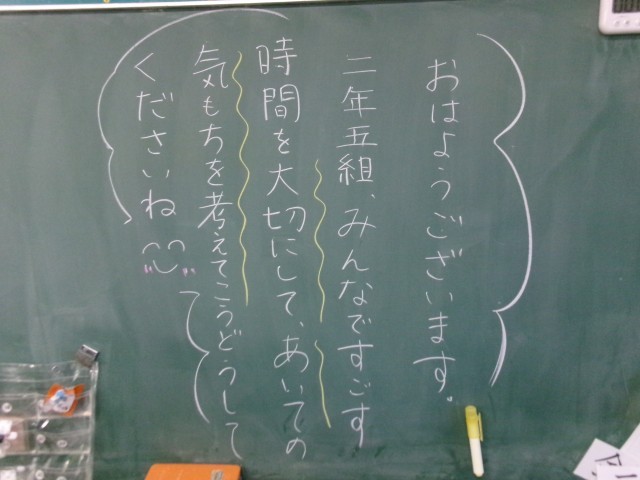 おはようございます。
二年五組、みんなですごす
時間を大切にして、あいての
気もちを考えてこうどうして
くださいね